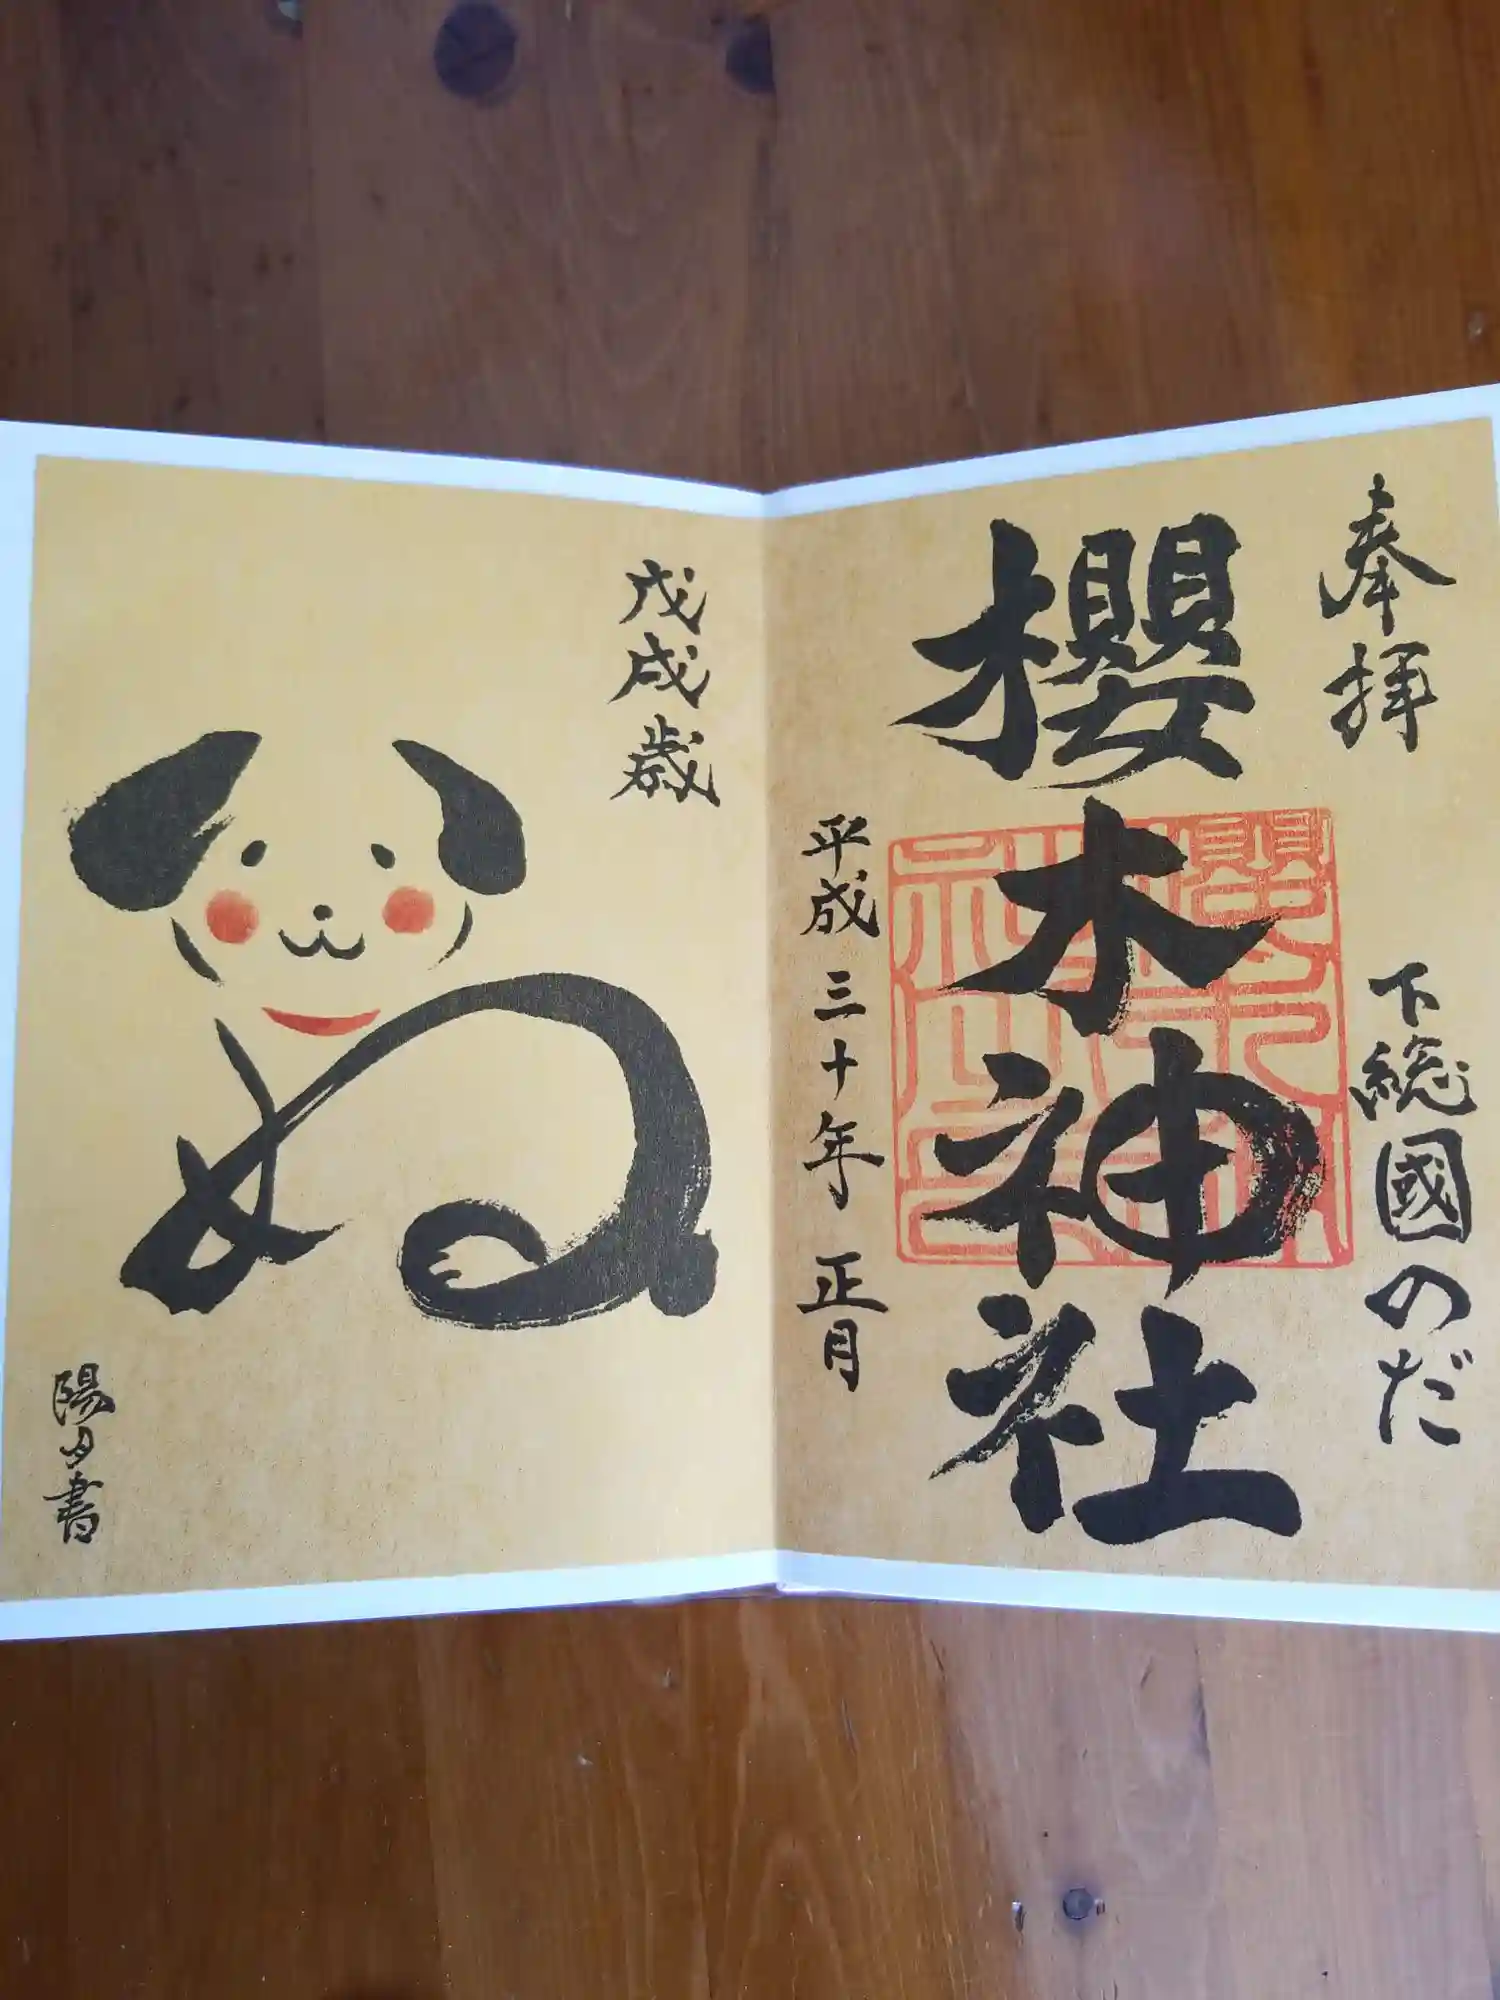 奉拝
下総國のだ
櫻木神社
平成三十年正月
戊戌歳
ぬ
陽月書